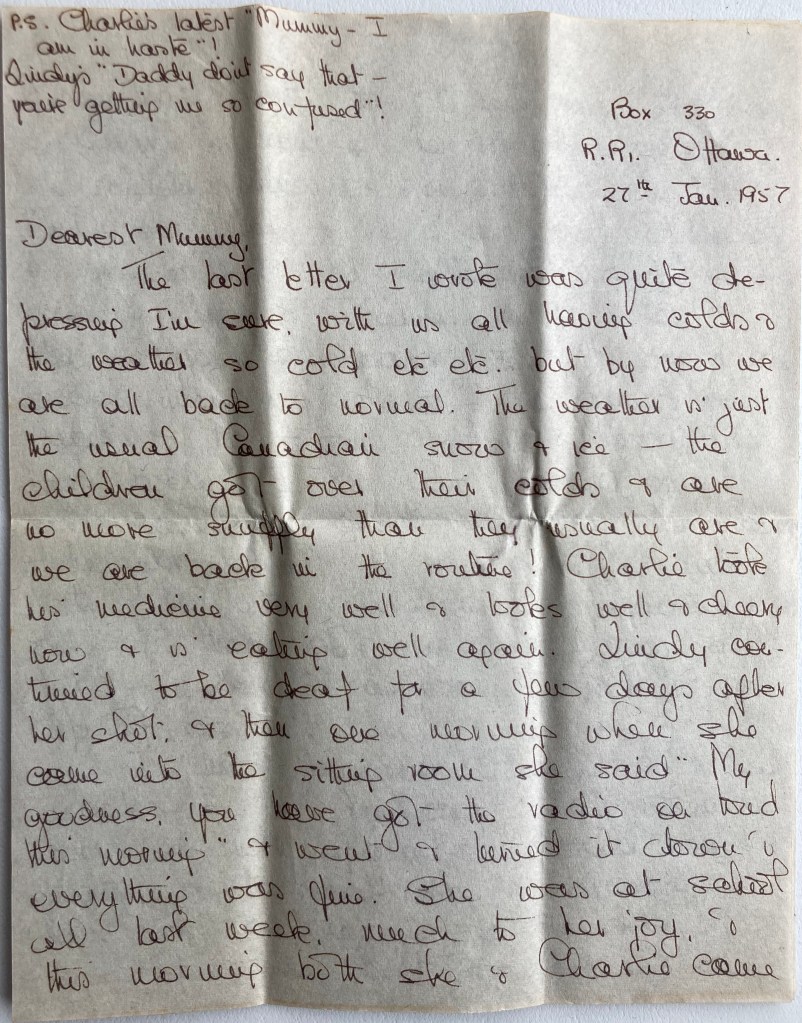 P.S. Charlie's latest "Mummy - I
am in haste"!
Lindy's "Daddy don't say that -
you're getting me so confused"!
Box 330
R.R1. Ottawa.
27th Jan. 1957
Dearest Mummy,
The last letter I wrote was quite de-
pressing I'm sure, with us all having colds &
the weather so cold etc etc. but by now we
are all back to normal. The weather is just
the usual Canadian snow & ice — the
children got over their colds & are
no more snuffly than they usually are &
we are back in the routine! Charlie took
his medicine very well & looks well & cheery
now & is eating well again. Lindy con-
tinued to be deaf for a few days after
her shot, & then one morning when she
came into the sitting room she said "My
goodness, you have got the radio on loud
this morning" & went & turned it down &
everything was fine. She was at school
all last week, much to her joy, &
this morning both she & Charlie came